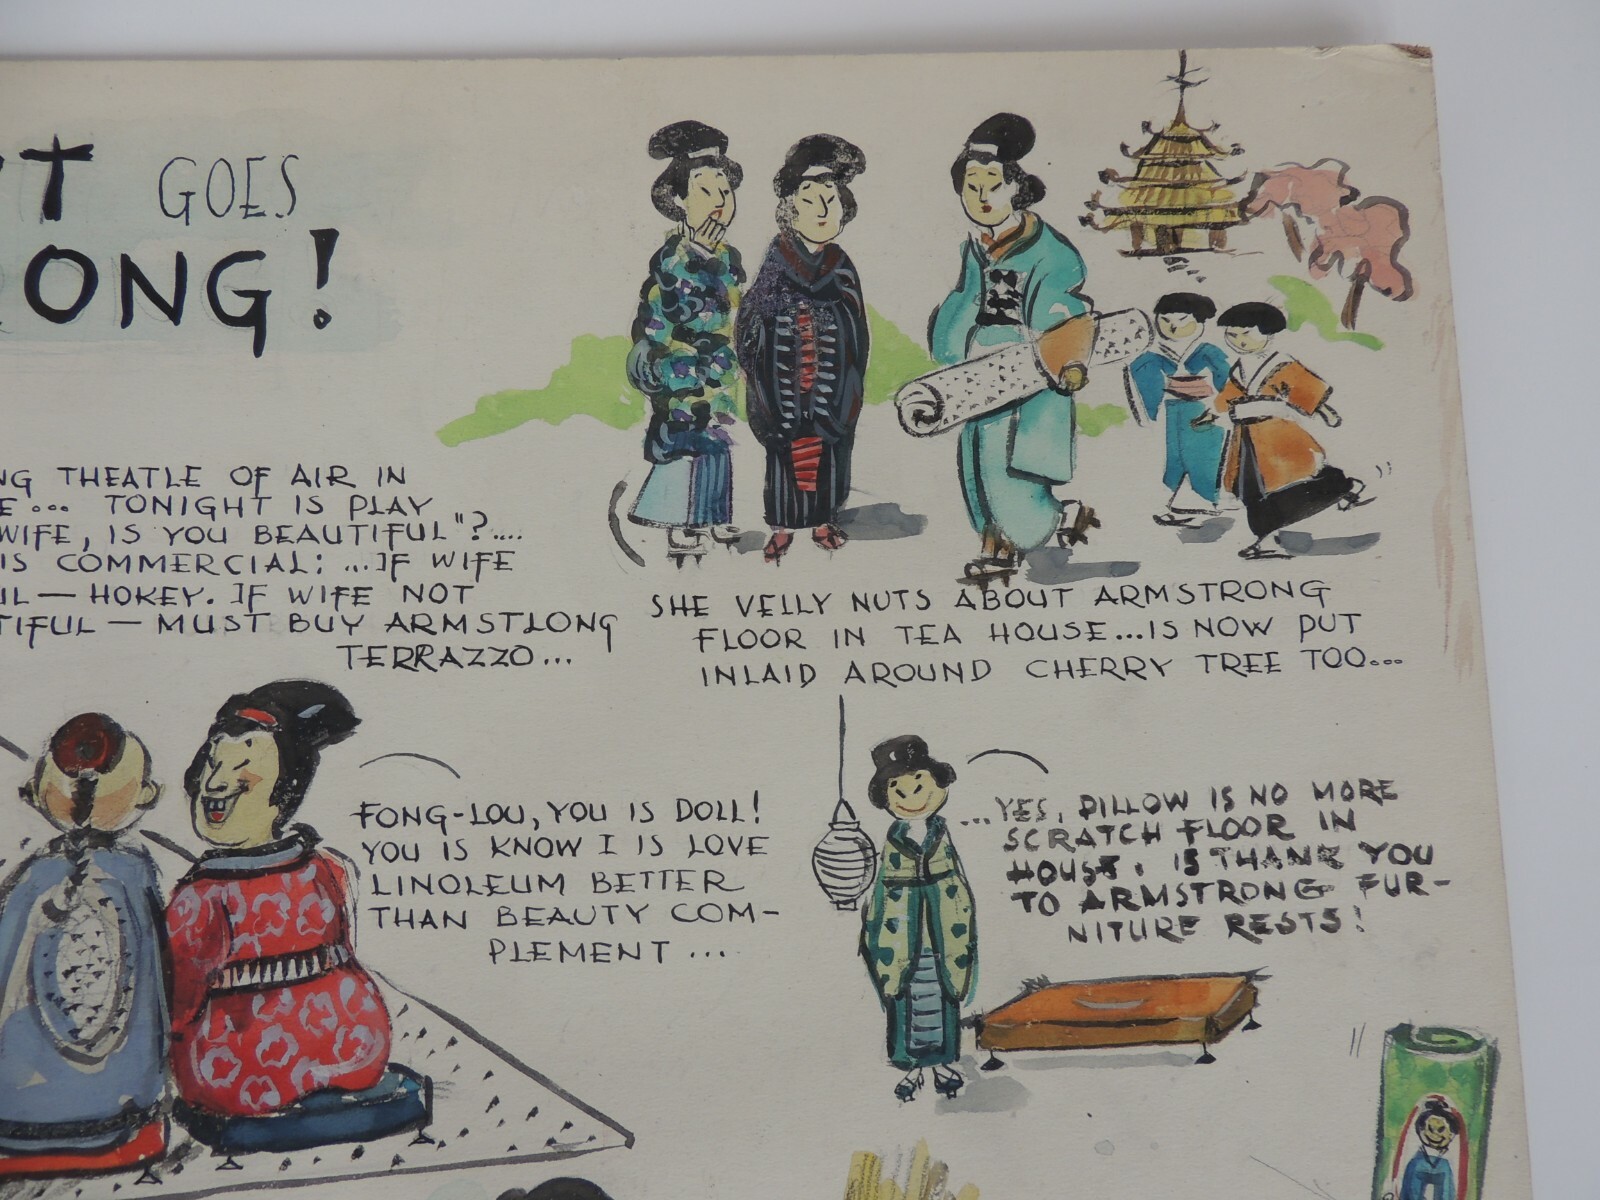 GOES
ONG!
NG THEATLE OF AIR IN
E... TONIGHT IS PLAY
WIFE, IS YOU BEAUTIFUL"?....
IS COMMERCIAL: ...IF WIFE
UL — HOKEY. IF WIFE NOT
TIFUL — MUST BUY ARMSTLONG
TERRAZZO...
SHE VELLY NUTS ABOUT ARMSTRONG
FLOOR IN TEA HOUSE...IS NOW PUT
INLAID AROUND CHERRY TREE TOO...
FONG-LOU, YOU IS DOLL!
YOU IS KNOW I IS LOVE
LINOLEUM BETTER
THAN BEAUTY COM-
PLEMENT ...
...YES, PILLOW IS NO MORE
SCRATCH FLOOR IN
HOUSE. IS THANK YOU
TO ARMSTRONG FUR-
NITURE RESTS!